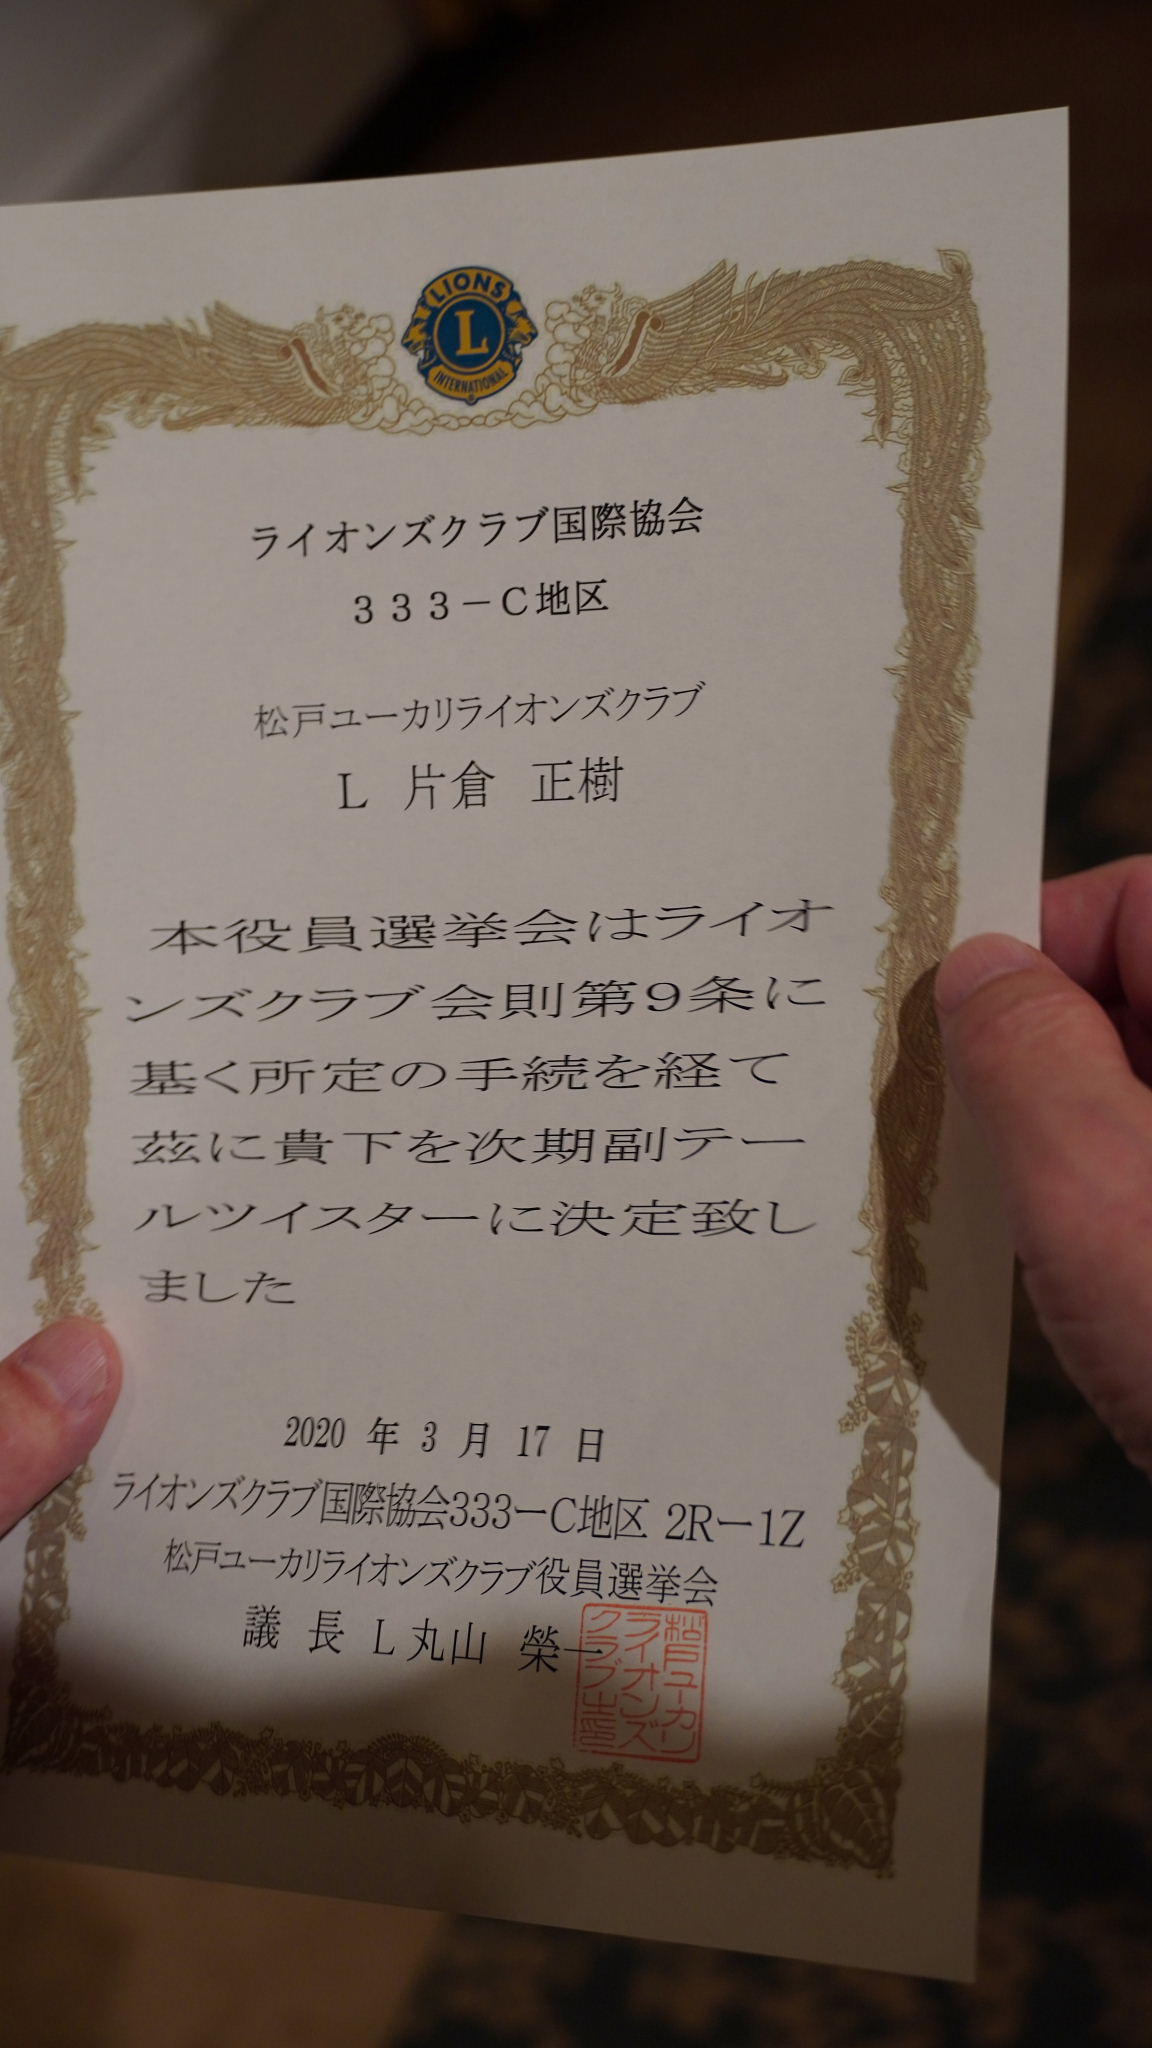 LIONS
L
INTERNATIONAL
ライオンズクラブ国際協会
333-C地区
松戸ユーカリライオンズクラブ
L 片倉 正樹
本役員選挙会はライオ
ンズクラブ会則第9条に
基く所定の手続を経て
茲に貴下を次期副テー
ルツイスターに決定致し
ました
2020 年 3 月 17 日
ライオンズクラブ国際協会333ーC地区 2Rー1Z
松戸ユーカリライオンズクラブ役員選挙会
議 長 L 丸山 榮一
松戸ユーカリ
ライオンズ
クラブ之印